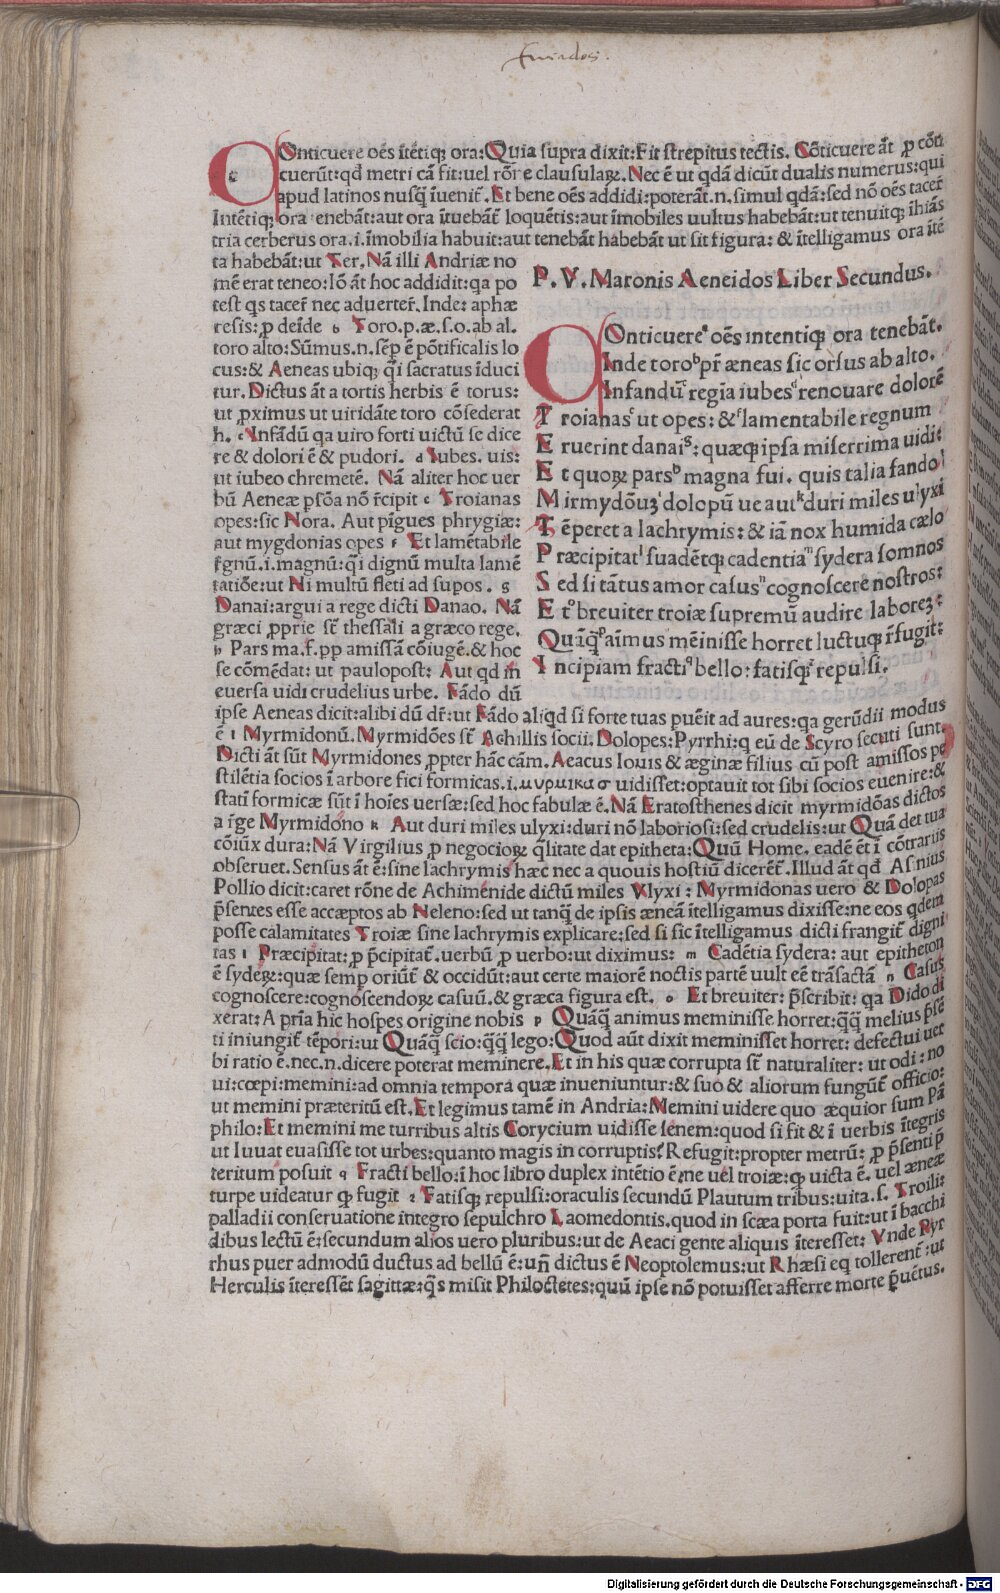 Eneidos.
COnticuere oēs ītētiq; ora: Quia supra dixit: Fit strepitus tectis. Cōticuere āt ꝓ cōti
cuerūt: qđ metri cā fit: uel rōne clausulaꝝ. Nec ē ut qdā dicūt dualis numerus: qui
apud latinos nusq̃ īuenit̃. Et bene oēs addidi: poterāt .n. simul qdā: sed nō oēs tacer̃
Intētiq; ora tenebāt: aut ora ītuebāt̃ loquētis: aut īmobiles uultus habebāt: ut tenuitq; īhiās
tria cerberus ora .i. īmobilia habuit: aut tenebāt habebāt ut sit figura: & ītelligamus ora ītē
ta habebāt: ut Ter. Nā illi Andriæ no
mē erat teneo: Iō āt hoc addidit: qa po
test qs tacer̃ nec aduerter̃. Inde: aphæ
resis: ꝓ deīde b Toro. p. æ. s. o. ab al.
toro alto: Sūmus .n. sēp ē pōtificalis lo
cus: & Aeneas ubiq; q̃i sacratus īduci
tur. Dictus āt a tortis herbis ē torus:
ut ꝓximus ut uiridāte toro cōsederat
h. c Infādū qa uiro forti uictū se dice
re & dolori ē & pudori. d Iubes. uis:
ut iubeo chremetē. Nā aliter hoc uer
bū Aeneæ ꝑsōa nō r̃cipit e Troianas
opes: sic Nora. Aut pīgues phrygiæ:
aut mygdonias opes f Et lamētabile
r̃gnū .i. magnū: q̃i dignū multa lamē
tatiōe: ut Ni multū fleti ad supos. g
Danai: argui a rege dicti Danao. Nā
græci ꝓprie st̄ thessali a græco rege.
h Pars ma. f. pp amissā cōiugē. & hoc
se cōmēdat: ut paulopost: Aut qd in
euersa uidi crudelius urbe. Fādo dū
ipse Aeneas dicit: alibi dū dr̃: ut Fādo aliqd si forte tuas puēit ad aures: qa gerūdii modus
ē i Myrmidonū. Myrmidōes st̄ Achillis socii. Dolopes: Pyrrhi: q eū de Scyro secuti sunt.
Dicti āt sūt Myrmidones ꝓpter hāc cām. Aeacus Iouis & æginæ filius cū post amissos pe
stilētia socios ī arbore fici formicas .i. μυρμικασ uidisset: optauit tot sibi socios euenire: &
stati formicæ sūt ī hoīes uersæ: sed hoc fabulæ ē. Nā Eratosthenes dicit myrmidōas dictos
a īge Myrmidono k Aut duri miles ulyxi: duri nō laboriosi: sed crudelis: ut Quā det tua
cōiūx dura: Nā Virgilius ꝓ negocioꝝ q̃litate dat epitheta: Quū Home. eadē et̄ ī cōtrariis
obseruet. Sensus āt ē: sine lachrymis hæc nec a quouis hostiū dicerēt̃. Illud āt qđ Asinius
Pollio dicit: caret rōne de Achimenide dictū miles Vlyxi: Myrmidonas uero & Dolopas
p̄sentes esse accæptos ab Neleno: sed ut tanq̃ de ipsis æneā ītelligamus dixisse: ne eos qdem
posse calamitates Troiæ sine lachrymis explicare: sed si sic ītelligamus dicti frangit̃ digni
tas l Præcipitat: ꝓ p̄cipitat̃. uerbū ꝓ uerbo: ut diximus: m Cadētia sydera: aut epitheton
ē sydeꝝ: quæ semp oriūt̃ & occidūt: aut certe maiorē noctis partē uult eē trāsactā n Casus
cognoscere: cognoscendoꝝ casuū. & græca figura est. o Et breuiter: p̄scribit: qa Dido di
xerat: A prīa hic hospes origine nobis p Quāq̃ animus meminisse horret: q̃q̃ melius p̄sē
ti iniungit̃ tēpori: ut Quāq̃ scio: q̃q̃ lego: Quod aūt dixit meminisset horret: defectui uer
bi ratio ē. nec .n. dicere poterat meminere. Et in his quæ corrupta st̄ naturaliter: ut odi: no
ui: cœpi: memini: ad omnia tempora quæ inueniuntur: & suo & aliorum fungūt̃ officio:
ut memini præteritū est. Et legimus tamē in Andria: Memini uidere quo æquior sum Pā
philo: Et memini me turribus altis Corycium uidisse senem: quod si fit & ī uerbis ītegris
ut Iuuat euasisse tot urbes: quanto magis in corruptis? Refugit: propter metrū: ꝓ p̄senti p̄
teritum posuit q Fracti bello: ī hoc libro duplex intētio ē: ne uel troiæ: ꝙ uicta ē. uel æneæ
turpe uideatur ꝙ fugit r Fatisq; repulsi: oraculis secundū Plautum tribus: uita .s. Troili:
palladii conseruatione integro sepulchro Laomedontis. quod in scæa porta fuit: ut ī bacchi
dibus lectū ē: secundum alios uero pluribus: ut de Aeaci gente aliquis īteresset: Vnde Pyr
rhus puer admodū ductus ad bellū ē: uñ dictus ē Neoptolemus: ut Rhæsi eq tollerent̃: ut
Herculis īteressēt sagittæ: q̃s misit Philoctetes: quū ipse nō potuisset afferre morte p̄uētus.
P. V. Maronis Aeneidos Liber Secundus.
COnticuere a oēs intentiq; ora tenebāt.
Inde toro b pr̄ æneas sic orsus ab alto.
Infandū c regīa iubes d renouare dolorē
Troianas e ut opes: & f lamentabile regnum
Eruerint danai g: quæq; ipsa miserrima uidi:
Et quoꝝ pars h magna fui. quis talia fando
Mirmydōuʒ i dolopū ue aut k duri miles ulyxi
Tēperet a lachrymis: & iā nox humida cælo
Præcipitat l suadētq; cadentia m sydera somnos
Sed si tātus amor casus n cognoscere nostros:
Et o breuiter troiæ supremū audire laboreʒ:
Quāq̃ p aīmus mēinisse horret luctuq; r̃fugit:
Incipiam fracti q bello: fatisq; r repulsi.
Digitalisierung gefördert durch die Deutsche Forschungsgemeinschaft - DFG